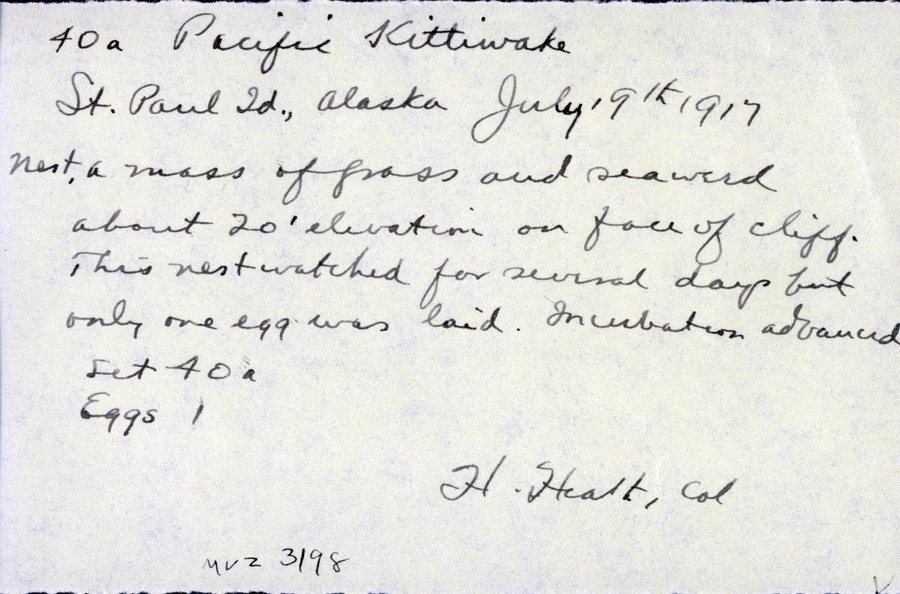 40a Pacific Kittiwake
St. Paul Id., Alaska July 19th 1917
Nest, a mass of grass and seaweed
about 20' elevation on face of cliff.
This nest watched for several days but
only one egg was laid. Incubation advanced
Set 40a
Eggs 1
H. Heath, Col
MVZ 3198